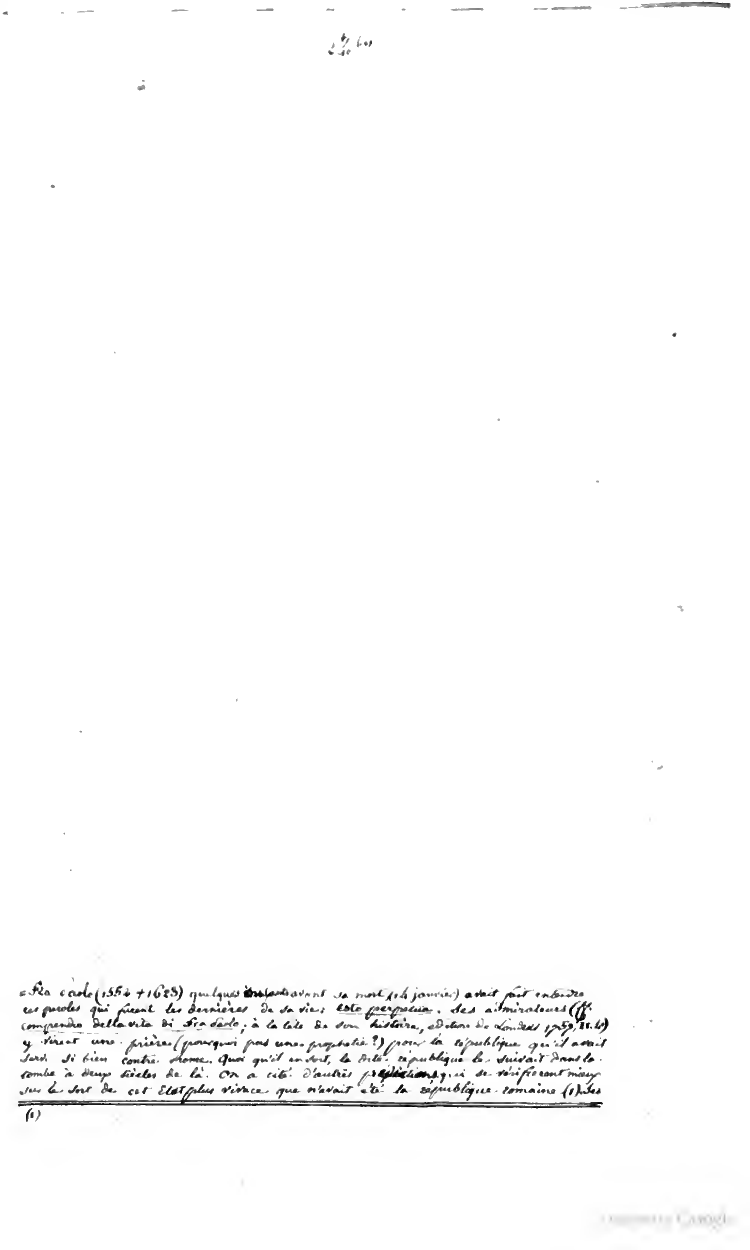 = Fra Paolo (1552 + 1623) quelques instants avant sa mort (14 janvier) avait fait entendre
ces paroles qui furent les dernières de sa vie: esto perpetua. Ses admirateurs (ff.
comprendre della vita di Fra Paolo, à la tête de son histoire, edition de Londres 1757,
y virent une prière (pourquoi pas une prophetie?) pour la république qu'il avait
servi si bien contre Rome. Quoi qu'il en soit, la dite république le suivait dans la
tombe à deux siècles de là. On a cité d'autres prédictions qui se vérifierent mieux
sur le sort de cet Etat plus vivace que n'avait été la république romaine (1). Les
(1)
Google